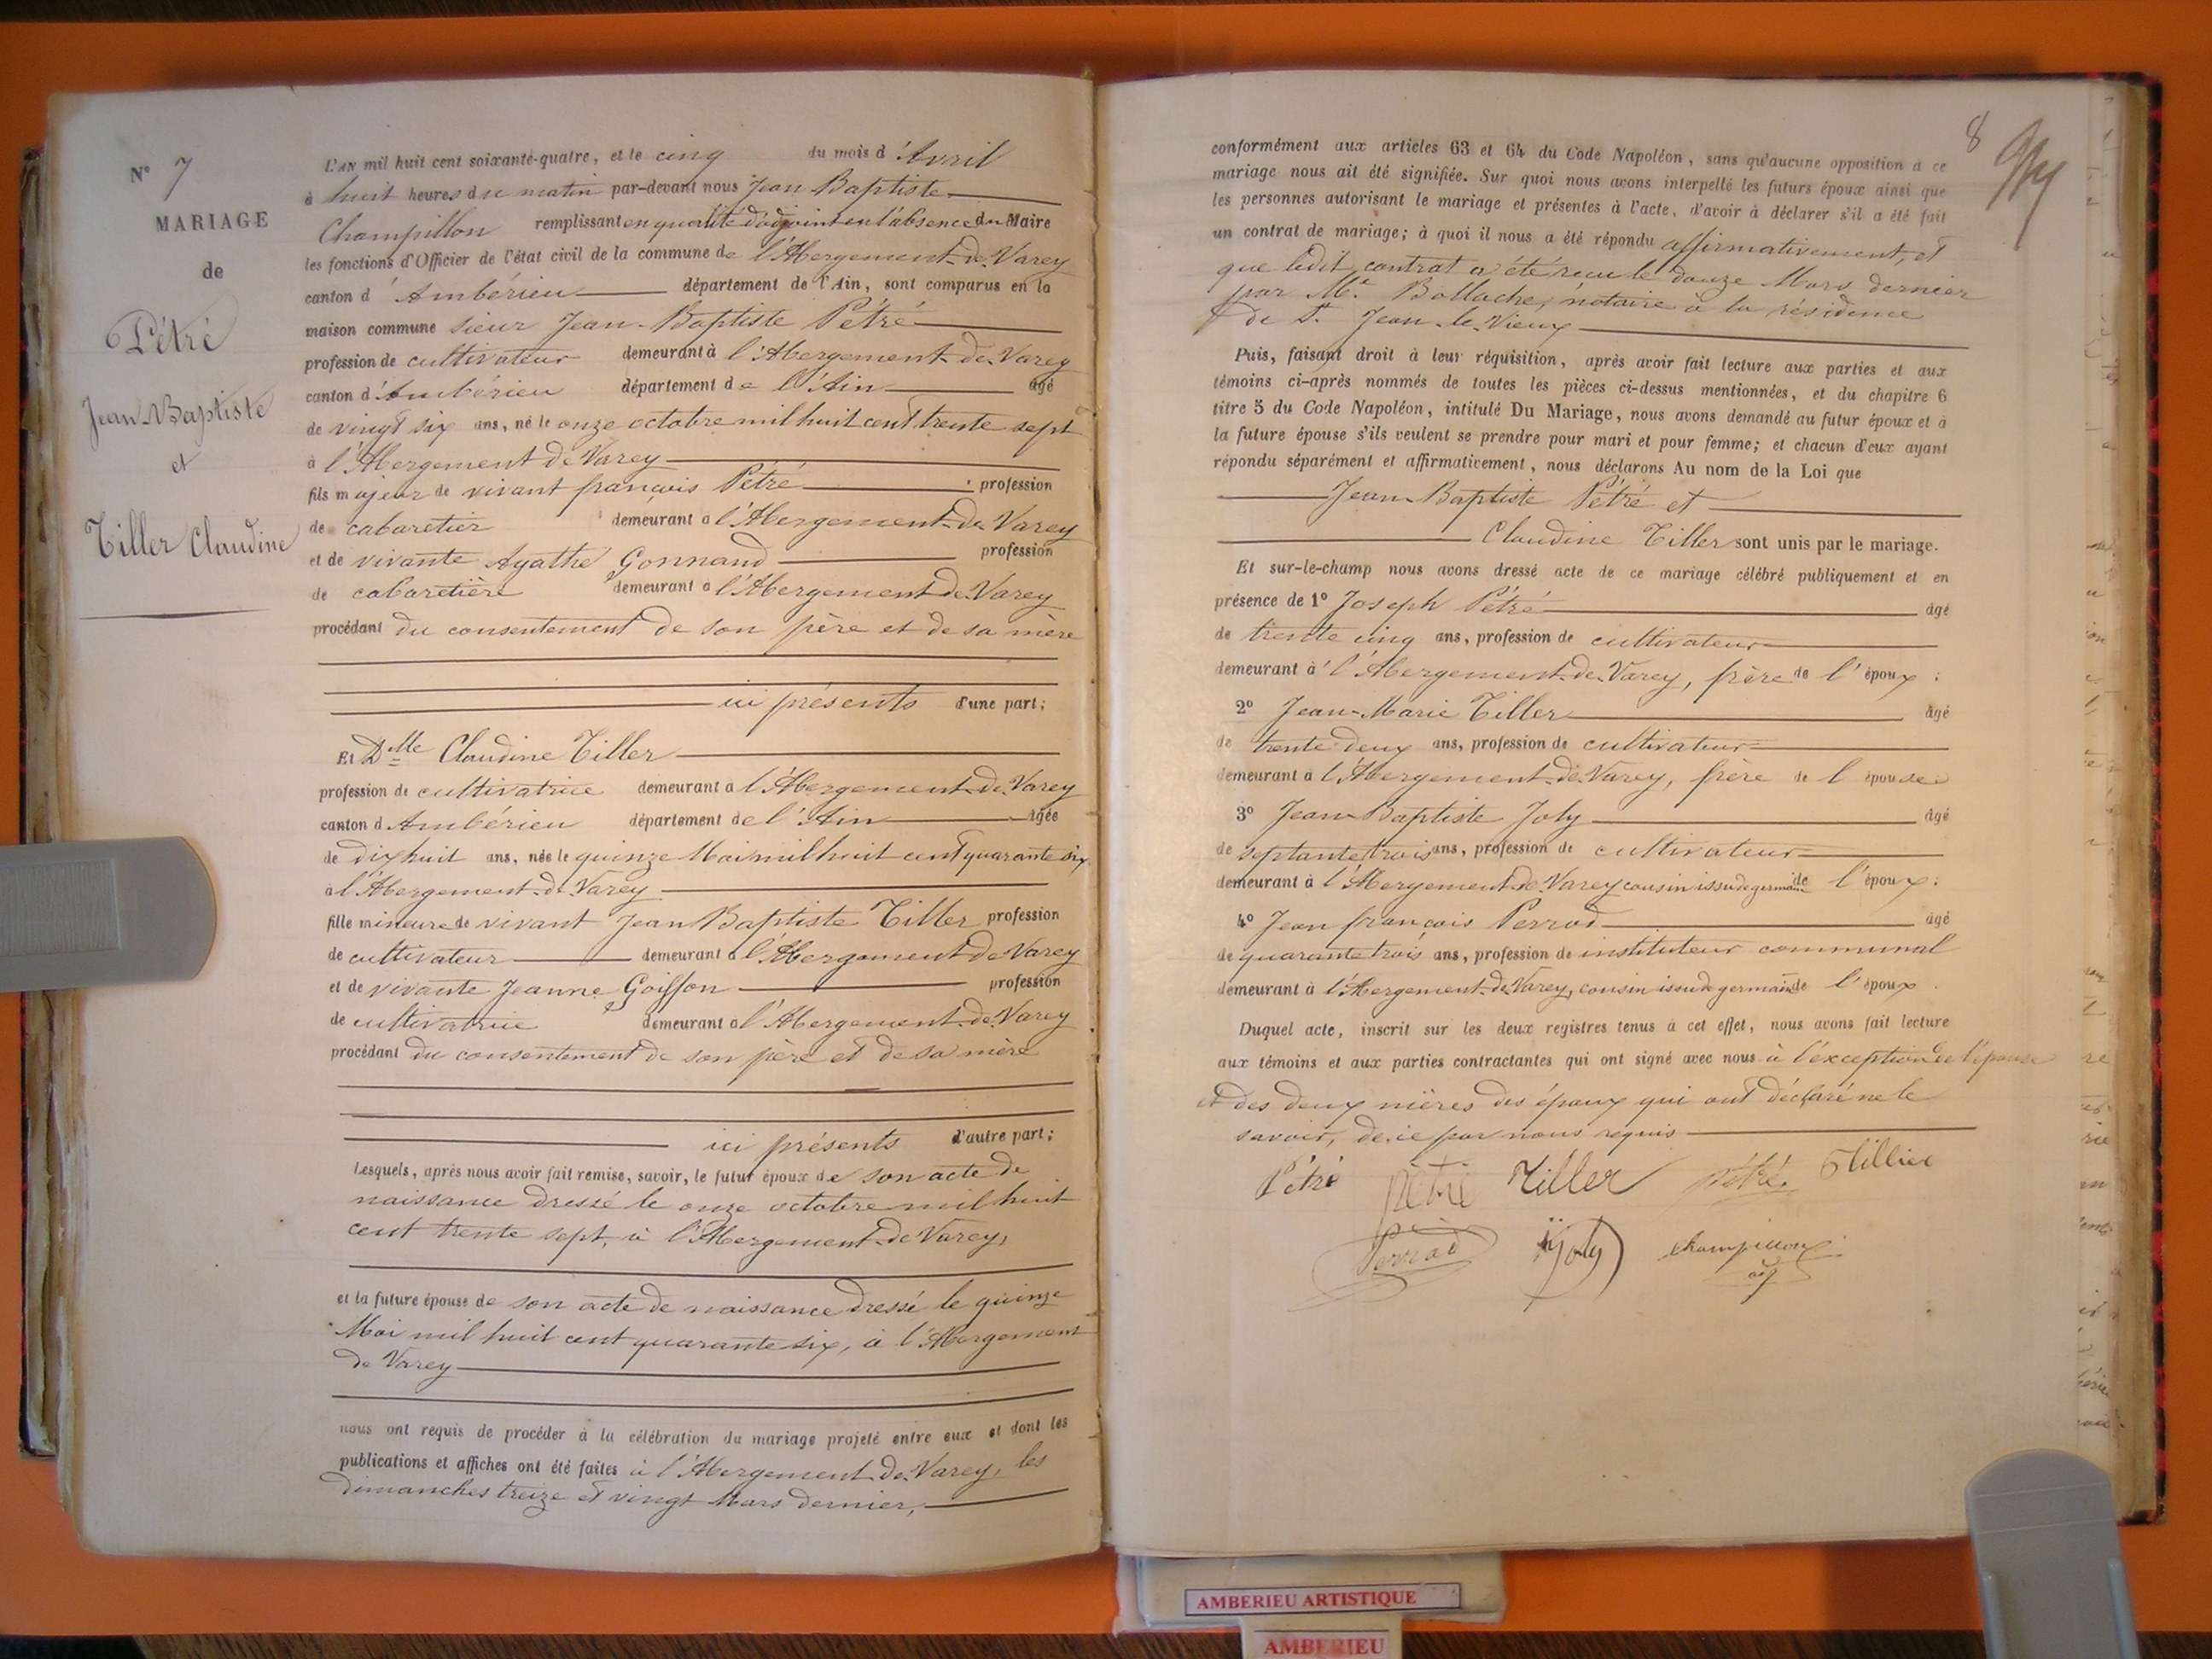 N° 7
MARIAGE
de
Pétré
Jean Baptiste
et
Tiller Claudine
L'AN mil huit cent soixante-quatre, et le cinq du mois d'Avril
à huit heures du matin par-devant nous Jean Baptiste
Champillon remplissant en qualité d'adjoint en l'absence du Maire
les fonctions d'Officier de l'état civil de la commune de l'Abergement-de-Varey
canton d'Ambérieu département de l'Ain, sont comparus en la
maison commune sieur Jean-Baptiste Pétré
profession de cultivateur demeurant à l'Abergement-de-Varey
canton d'Ambérieu département de l'Ain âgé
de vingt six ans, né le onze octobre mil huit cent trente sept
à l'Abergement de Varey
fils majeur de vivant françois Pétré profession
de cabaretier demeurant à l'Abergement-de-Varey
et de vivante Agathe Gonnand profession
de cabaretière demeurant à l'Abergement de Varey
procédant du consentement de son père et de sa mère
ici présents d'une part;
Et Dlle Claudine Tiller
profession de cultivatrice demeurant à l'Abergement-de-Varey
canton d'Ambérieu département de l'Ain âgée
de dix huit ans, née le quinze Mai mil huit cent quarante six
à l'Abergement-de-Varey
fille mineure de vivant Jean Baptiste Tiller profession
de cultivateur demeurant à l'Abergement de Varey
et de vivante Jeanne Goiffon profession
de cultivatrice demeurant à l'Abergement-de-Varey
procédant du consentement de son père et de sa mère
ici présents d'autre part;
Lesquels, après nous avoir fait remise, savoir, le futur époux de son acte de
naissance dressé le onze octobre mil huit
cent trente sept, à l'Abergement-de-Varey,
et la future épouse de son acte de naissance dressé le quinze
Mai mil huit cent quarante six, à l'Abergement
de Varey
nous ont requis de procéder à la célébration du mariage projeté entre eux et dont les
publications et affiches ont été faites à l'Abergement-de-Varey, les
dimanches treize et vingt Mars dernier,
8
conformément aux articles 63 et 64 du Code Napoléon, sans qu'aucune opposition à ce
mariage nous ait été signifiée. Sur quoi nous avons interpellé les futurs époux ainsi que
les personnes autorisant le mariage et présentes à l'acte, d'avoir à déclarer s'il a été fait
un contrat de mariage; à quoi il nous a été répondu affirmativement, et
que ledit contrat a été reçu le douze Mars dernier
par Me Bollache, notaire à la résidence
de St Jean-le-Vieux
Puis, faisant droit à leur réquisition, après avoir fait lecture aux parties et aux
témoins ci-après nommés de toutes les pièces ci-dessus mentionnées, et du chapitre 6
titre 5 du Code Napoléon, intitulé Du Mariage, nous avons demandé au futur époux et à
la future épouse s'ils veulent se prendre pour mari et pour femme; et chacun d'eux ayant
répondu séparément et affirmativement, nous déclarons Au nom de la Loi que
Jean-Baptiste Pétré et
Claudine Tiller sont unis par le mariage.
Et sur-le-champ nous avons dressé acte de ce mariage célébré publiquement et en
présence de 1° Joseph Pétré âgé
de trente cinq ans, profession de cultivateur
demeurant à l'Abergement-de-Varey, frère de l'époux;
2° Jean-Marie Tiller âgé
de trente deux ans, profession de cultivateur
demeurant à l'Abergement-de-Varey, frère de l'épouse;
3° Jean-Baptiste Joly âgé
de septante trois ans, profession de cultivateur
demeurant à l'Abergement-de-Varey cousin issu de germain de l'époux;
4° Jean françois Perrod âgé
de quarante trois ans, profession de instituteur communal
demeurant à l'Abergement-de-Varey, cousin issu de germain de l'époux.
Duquel acte, inscrit sur les deux registres tenus à cet effet, nous avons fait lecture
aux témoins et aux parties contractantes qui ont signé avec nous à l'exception de l'épouse
et des deux mères des époux qui ont déclaré ne le
savoir, de ce par nous requis
Pétré Pétré Tiller Pétré Tillier
Perrod Joly Champillon
adj
AMBERIEU ARTISTIQUE
AMBERIEU